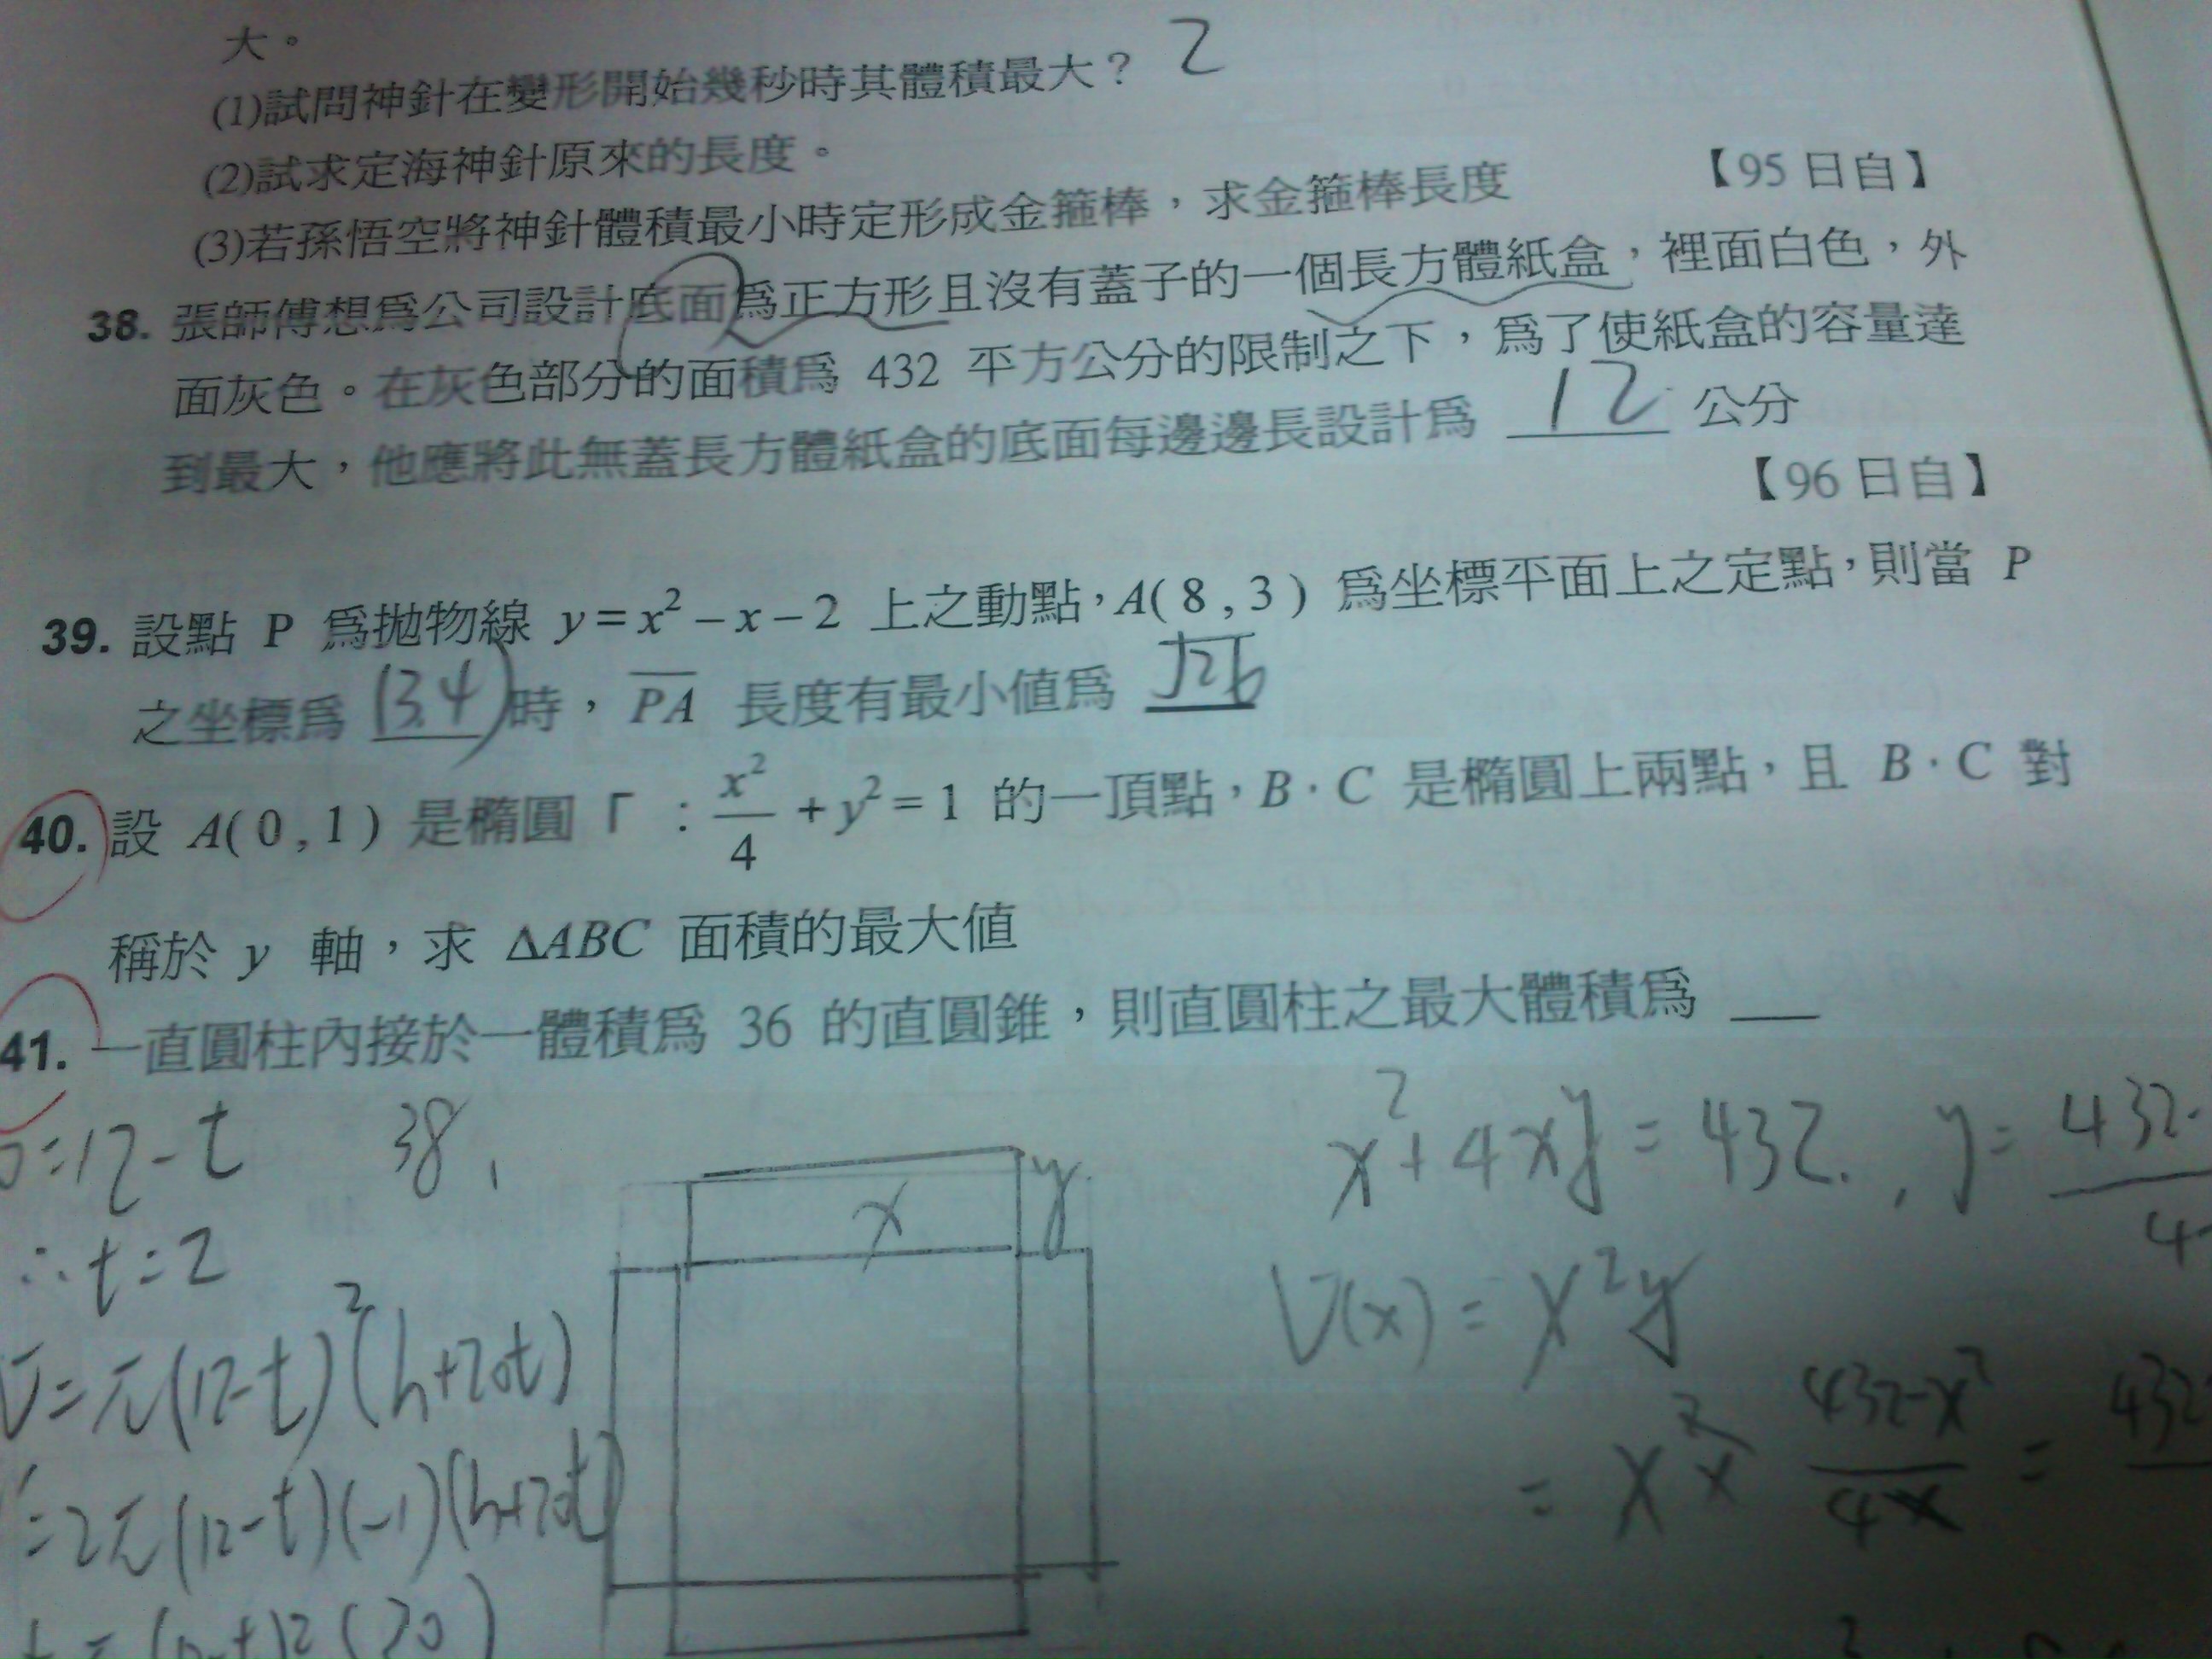 大。
(1)試問神針在變形開始幾秒時其體積最大？ 2
(2)試求定海神針原來的長度。
(3)若孫悟空將神針體積最小時定形成金箍棒，求金箍棒長度 【95 日自】
38. 張師傅想爲公司設計底面爲正方形且沒有蓋子的一個長方體紙盒，裡面白色，外
面灰色。在灰色部分的面積爲 432 平方公分的限制之下，爲了使紙盒的容量達
到最大，他應將此無蓋長方體紙盒的底面每邊邊長設計爲 12 公分
【96 日自】
39. 設點 P 爲拋物線 y=x²-x-2 上之動點，A(8,3) 爲坐標平面上之定點，則當 P
之坐標爲 (3,4) 時，PA 長度有最小值爲 √26
40. 設 A(0,1) 是橢圓「 : x²/4 + y²=1 的一頂點，B、C 是橢圓上兩點，且 B、C 對
稱於 y 軸，求 ΔABC 面積的最大值
41. 一直圓柱內接於一體積爲 36 的直圓錐，則直圓柱之最大體積爲
=12-t
∴t=2
V=π(12-t)²(h+20t)
=2π(12-t)(-1)(h+20t)
38.
x
y
x²+4xy=432. , y= 432- / 4
V(x)=x²y
= x² × 432-x² / 4x = 432